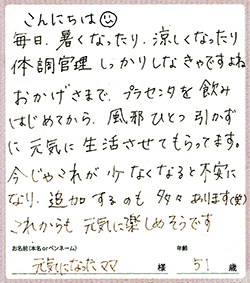 こんにちは☺
毎日、暑くなったり、涼しくなったり
体調管理 しっかりしなきゃですよね
おかげさまで、プラセンタを飲み
はじめてから、風邪ひとつ引かず
に 元気に 生活させてもらってます。
今じゃこれが 少なくなると不安に
なり、追加するのも 多々あります(笑)
これからも 元気に楽しめそうです
お名前(本名orペンネーム) 年齢
元気になったママ 様 51 歳